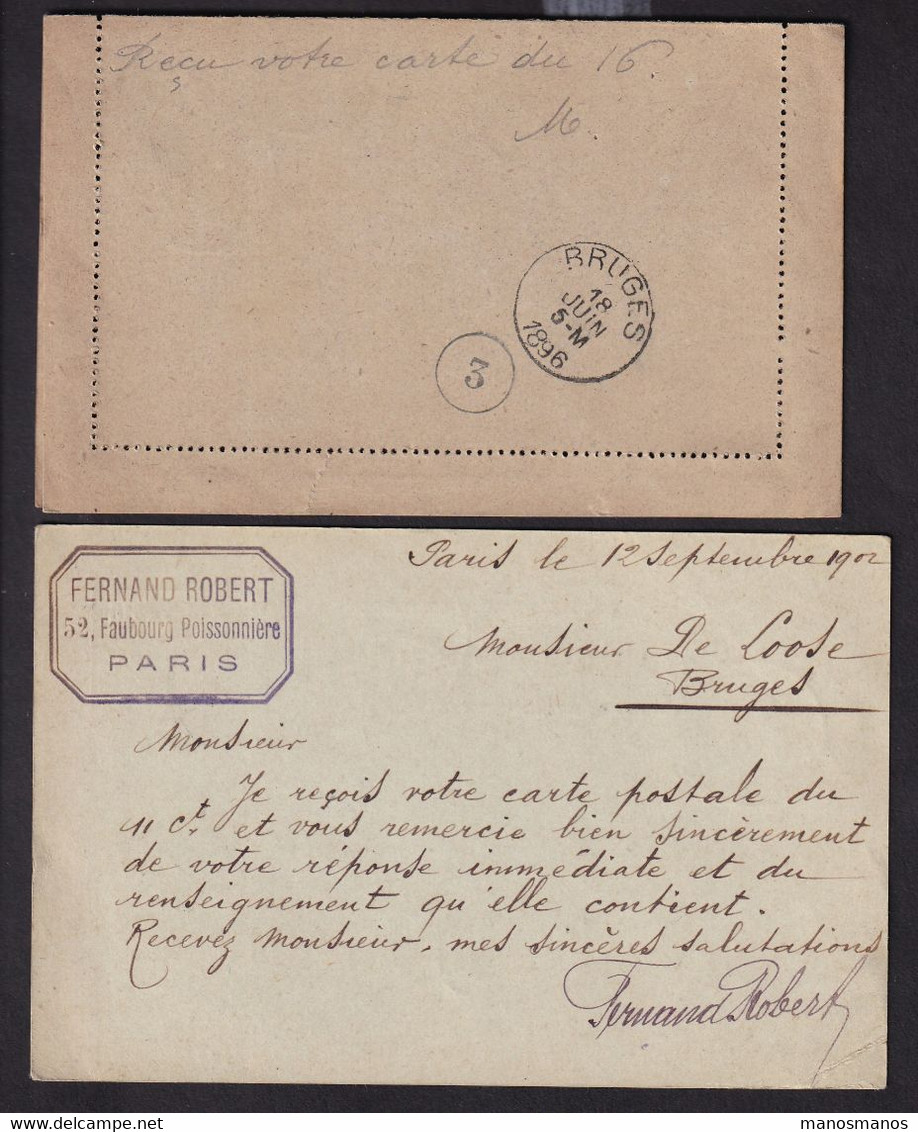 Reçu votre carte du 16.
M.
BRUGES
18
JUIN
5-M
1896
3
Paris le 12 Septembre 1902
FERNAND ROBERT
52, Faubourg Poissonnière
PARIS
Monsieur De Loose
Bruges
Monsieur
Je reçois votre carte postale du
11 ct. et vous remercie bien sincèrement
de votre réponse immédiate et du
renseignement qu'elle contient.
Recevez Monsieur, mes sincères salutations
Fernand Robert
manosmanos